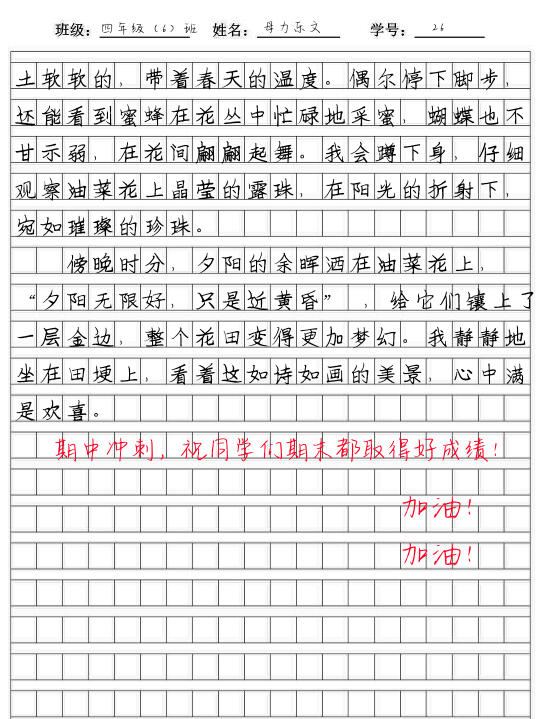 班级：四年级（6）班 姓名：母力乐文 学号：26
土软软的，带着春天的温度。偶尔停下脚步，
还能看到蜜蜂在花丛中忙碌地采蜜，蝴蝶也不
甘示弱，在花间翩翩起舞。我会蹲下身，仔细
观察油菜花上晶莹的露珠，在阳光的折射下，
宛如璀璨的珍珠。
傍晚时分，夕阳的余晖洒在油菜花上，
“夕阳无限好，只是近黄昏”，给它们镶上了
一层金边，整个花田变得更加梦幻。我静静地
坐在田埂上，看着这如诗如画的美景，心中满
是欢喜。
期中冲刺，祝同学们期末都取得好成绩！
加油！
加油！